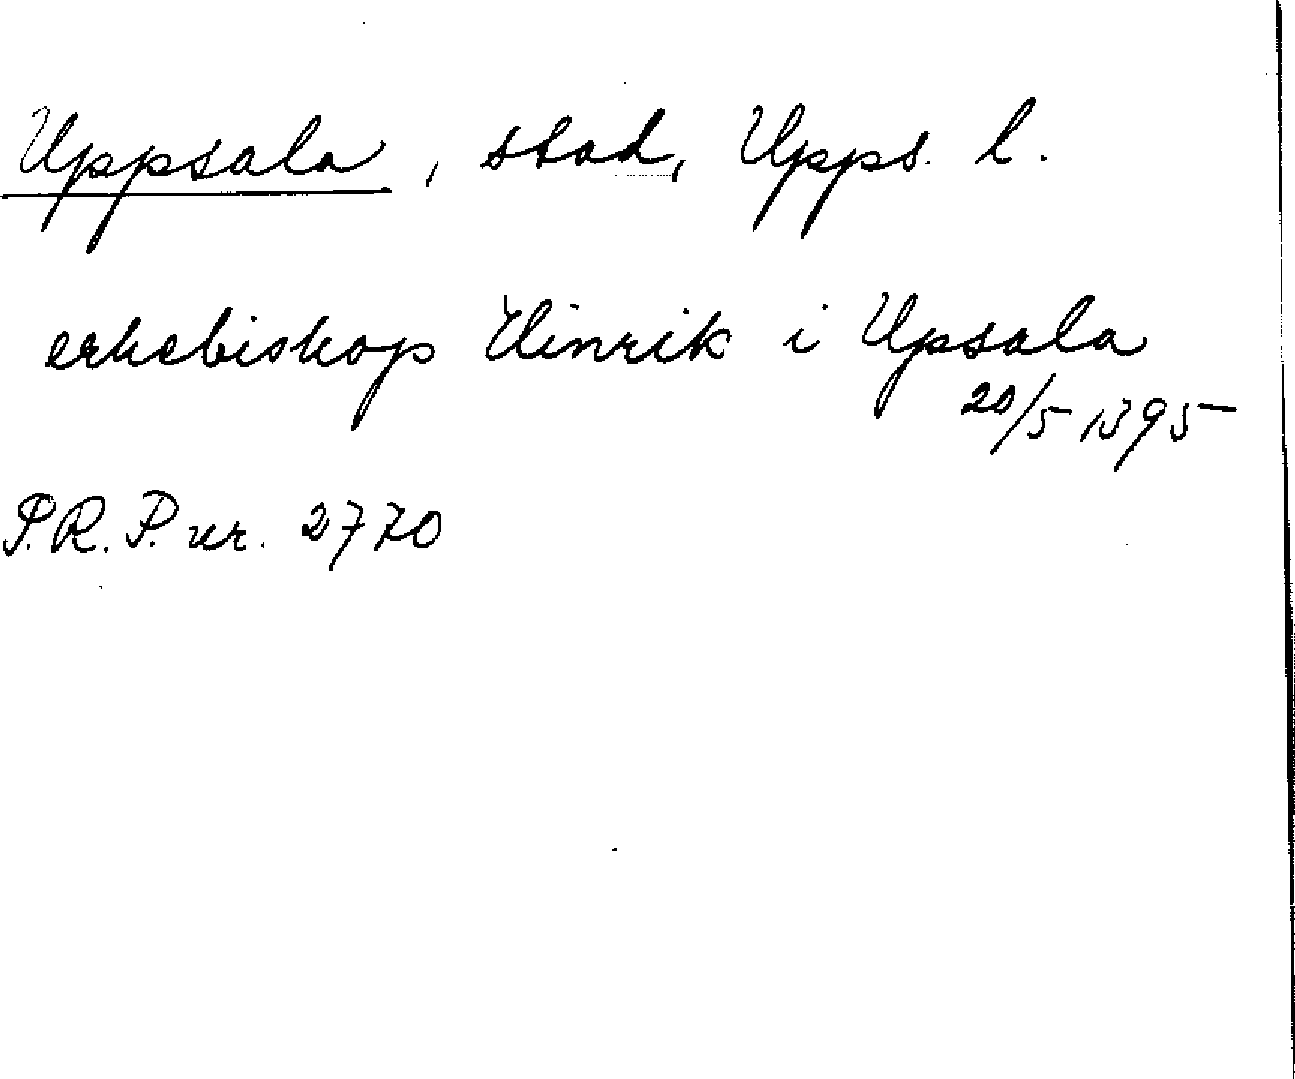 Uppsala, stad, Upps. l.
erkebiskop Hinrik i Upsala
20/5 1395
P.R.P. nr. 2770